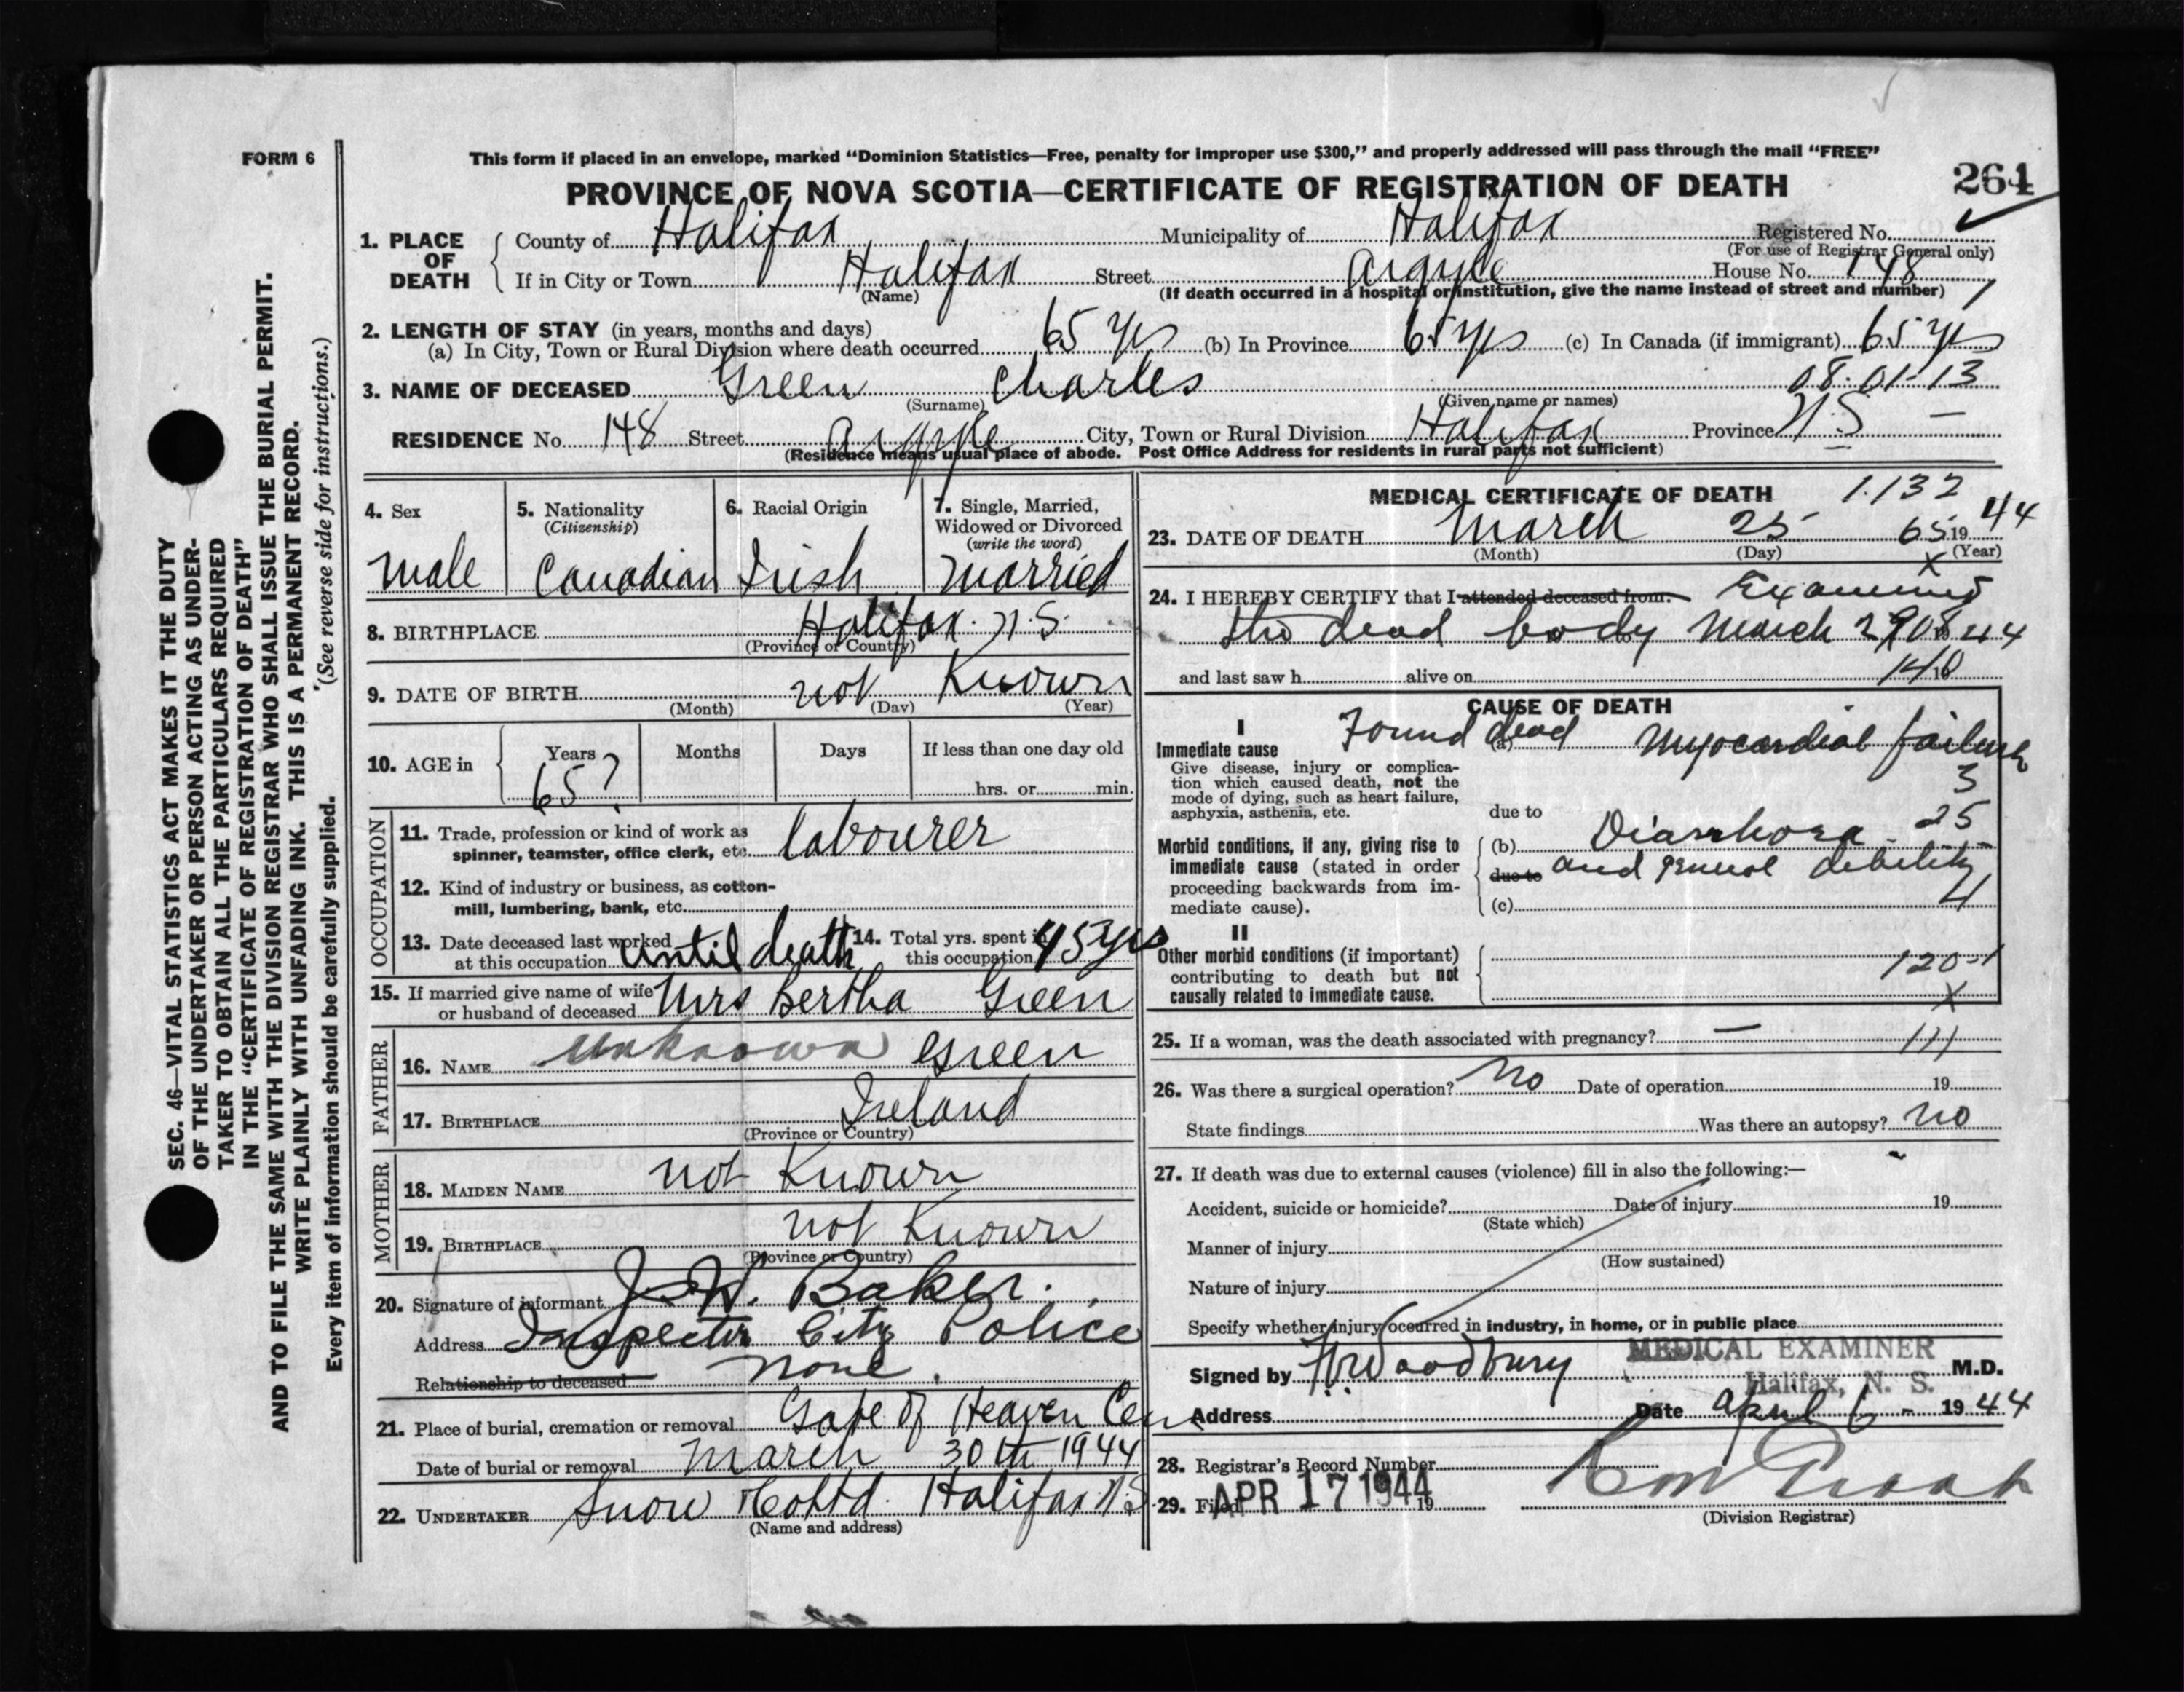 FORM 6
This form if placed in an envelope, marked “Dominion Statistics—Free, penalty for improper use $300,” and properly addressed will pass through the mail “FREE”
PROVINCE OF NOVA SCOTIA—CERTIFICATE OF REGISTRATION OF DEATH
264
1. PLACE OF DEATH
County of Halifax Municipality of Halifax Registered No.
(For use of Registrar General only)
If in City or Town Halifax Street Argyle House No. 148
(Name) (If death occurred in a hospital or institution, give the name instead of street and number)
2. LENGTH OF STAY (in years, months and days)
(a) In City, Town or Rural Division where death occurred 65 yrs (b) In Province 65 yrs (c) In Canada (if immigrant) 65 yrs
08.01-13
3. NAME OF DECEASED Green Charles
(Surname) (Given name or names)
RESIDENCE No. 148 Street Argyle City, Town or Rural Division Halifax Province N.S —
(Residence means usual place of abode. Post Office Address for residents in rural parts not sufficient)
4. Sex
male
5. Nationality
(Citizenship)
Canadian
6. Racial Origin
Irish
7. Single, Married,
Widowed or Divorced
(write the word)
Married
8. BIRTHPLACE Halifax. N.S.
(Province or Country)
9. DATE OF BIRTH not Known
(Month) (Day) (Year)
10. AGE in
Years Months Days If less than one day old
65? hrs. or min.
OCCUPATION
11. Trade, profession or kind of work as
spinner, teamster, office clerk, etc. labourer
12. Kind of industry or business, as cotton-
mill, lumbering, bank, etc.
13. Date deceased last worked
at this occupation until death
14. Total yrs. spent in
this occupation 45 yrs
15. If married give name of wife
or husband of deceased Mrs Bertha Green
FATHER
16. NAME unknown Green
17. BIRTHPLACE Ireland
(Province or Country)
MOTHER
18. MAIDEN NAME not Known
19. BIRTHPLACE not Known
(Province or Country)
20. Signature of informant J.W. Baker.
Address Inspector City Police
Relationship to deceased none.
21. Place of burial, cremation or removal Gate of Heaven Cem
Date of burial or removal March 30th 1944
22. UNDERTAKER Snow & Co Ltd. Halifax N.S
(Name and address)
MEDICAL CERTIFICATE OF DEATH 1.132
23. DATE OF DEATH March 25 65 19 44
(Month) (Day) (Year)
x
24. I HEREBY CERTIFY that I attended deceased from: Examined
the dead body March 44
and last saw h alive on 19
CAUSE OF DEATH
I
Immediate cause
Found dead (a) Myocardial failure
Give disease, injury or complica-
tion which caused death, not the
mode of dying, such as heart failure,
asphyxia, asthenia, etc.
3
due to
25
Morbid conditions, if any, giving rise to
immediate cause (stated in order
proceeding backwards from im-
mediate cause).
(b) Diarrhoea
due to and general debility
4
(c)
II
Other morbid conditions (if important)
contributing to death but not
causally related to immediate cause.
120-1
x
25. If a woman, was the death associated with pregnancy? — 111
26. Was there a surgical operation? No Date of operation 19
State findings Was there an autopsy? no
27. If death was due to external causes (violence) fill in also the following:—
Accident, suicide or homicide? Date of injury 19
(State which)
Manner of injury
(How sustained)
Nature of injury
Specify whether injury occurred in industry, in home, or in public place
MEDICAL EXAMINER
Signed by Woodbury M.D.
Halifax, N. S.
Address Date April 6 - 19 44
28. Registrar's Record Number
29. Filed APR 17 1944 19
(Division Registrar)
SEC. 46—VITAL STATISTICS ACT MAKES IT THE DUTY
OF THE UNDERTAKER OR PERSON ACTING AS UNDER-
TAKER TO OBTAIN ALL THE PARTICULARS REQUIRED
IN THE “CERTIFICATE OF REGISTRATION OF DEATH”
AND TO FILE THE SAME WITH THE DIVISION REGISTRAR WHO SHALL ISSUE THE BURIAL PERMIT.
WRITE PLAINLY WITH UNFADING INK. THIS IS A PERMANENT RECORD.
Every item of information should be carefully supplied. (See reverse side for instructions.)